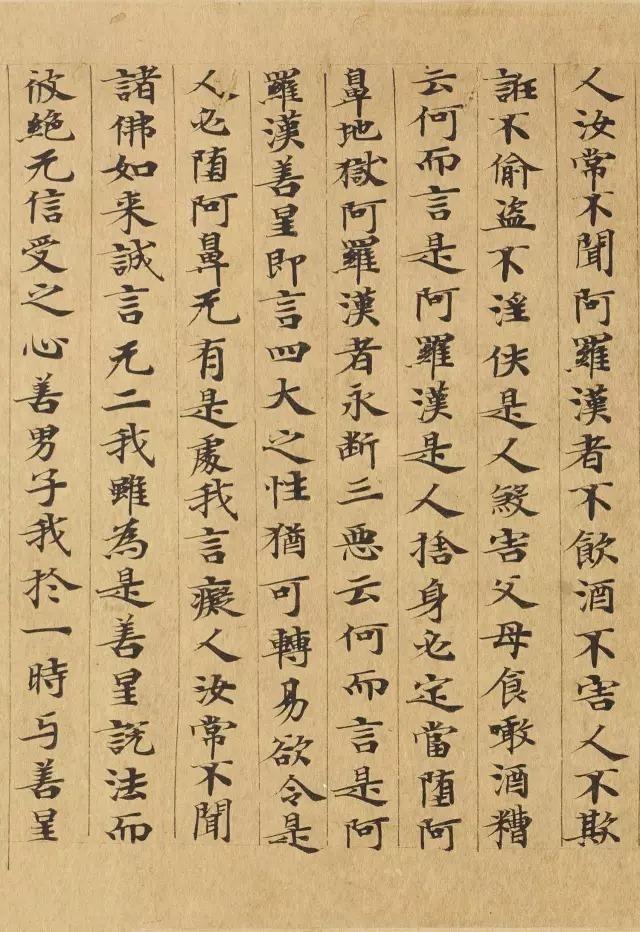 人汝常不聞阿羅漢者不飲酒不害人不欺
誑不偷盗不淫佚是人煞害父母食噉酒糟
云何而言是阿羅漢是人捨身必定當堕阿
鼻地獄阿羅漢者永断三惡云何而言是阿
羅漢善星即言四大之性猶可轉易欲令是
人必堕阿鼻无有是處我言癡人汝常不聞
諸佛如来誠言无二我雖為是善星說法而
彼絶无信受之心善男子我於一時与善星